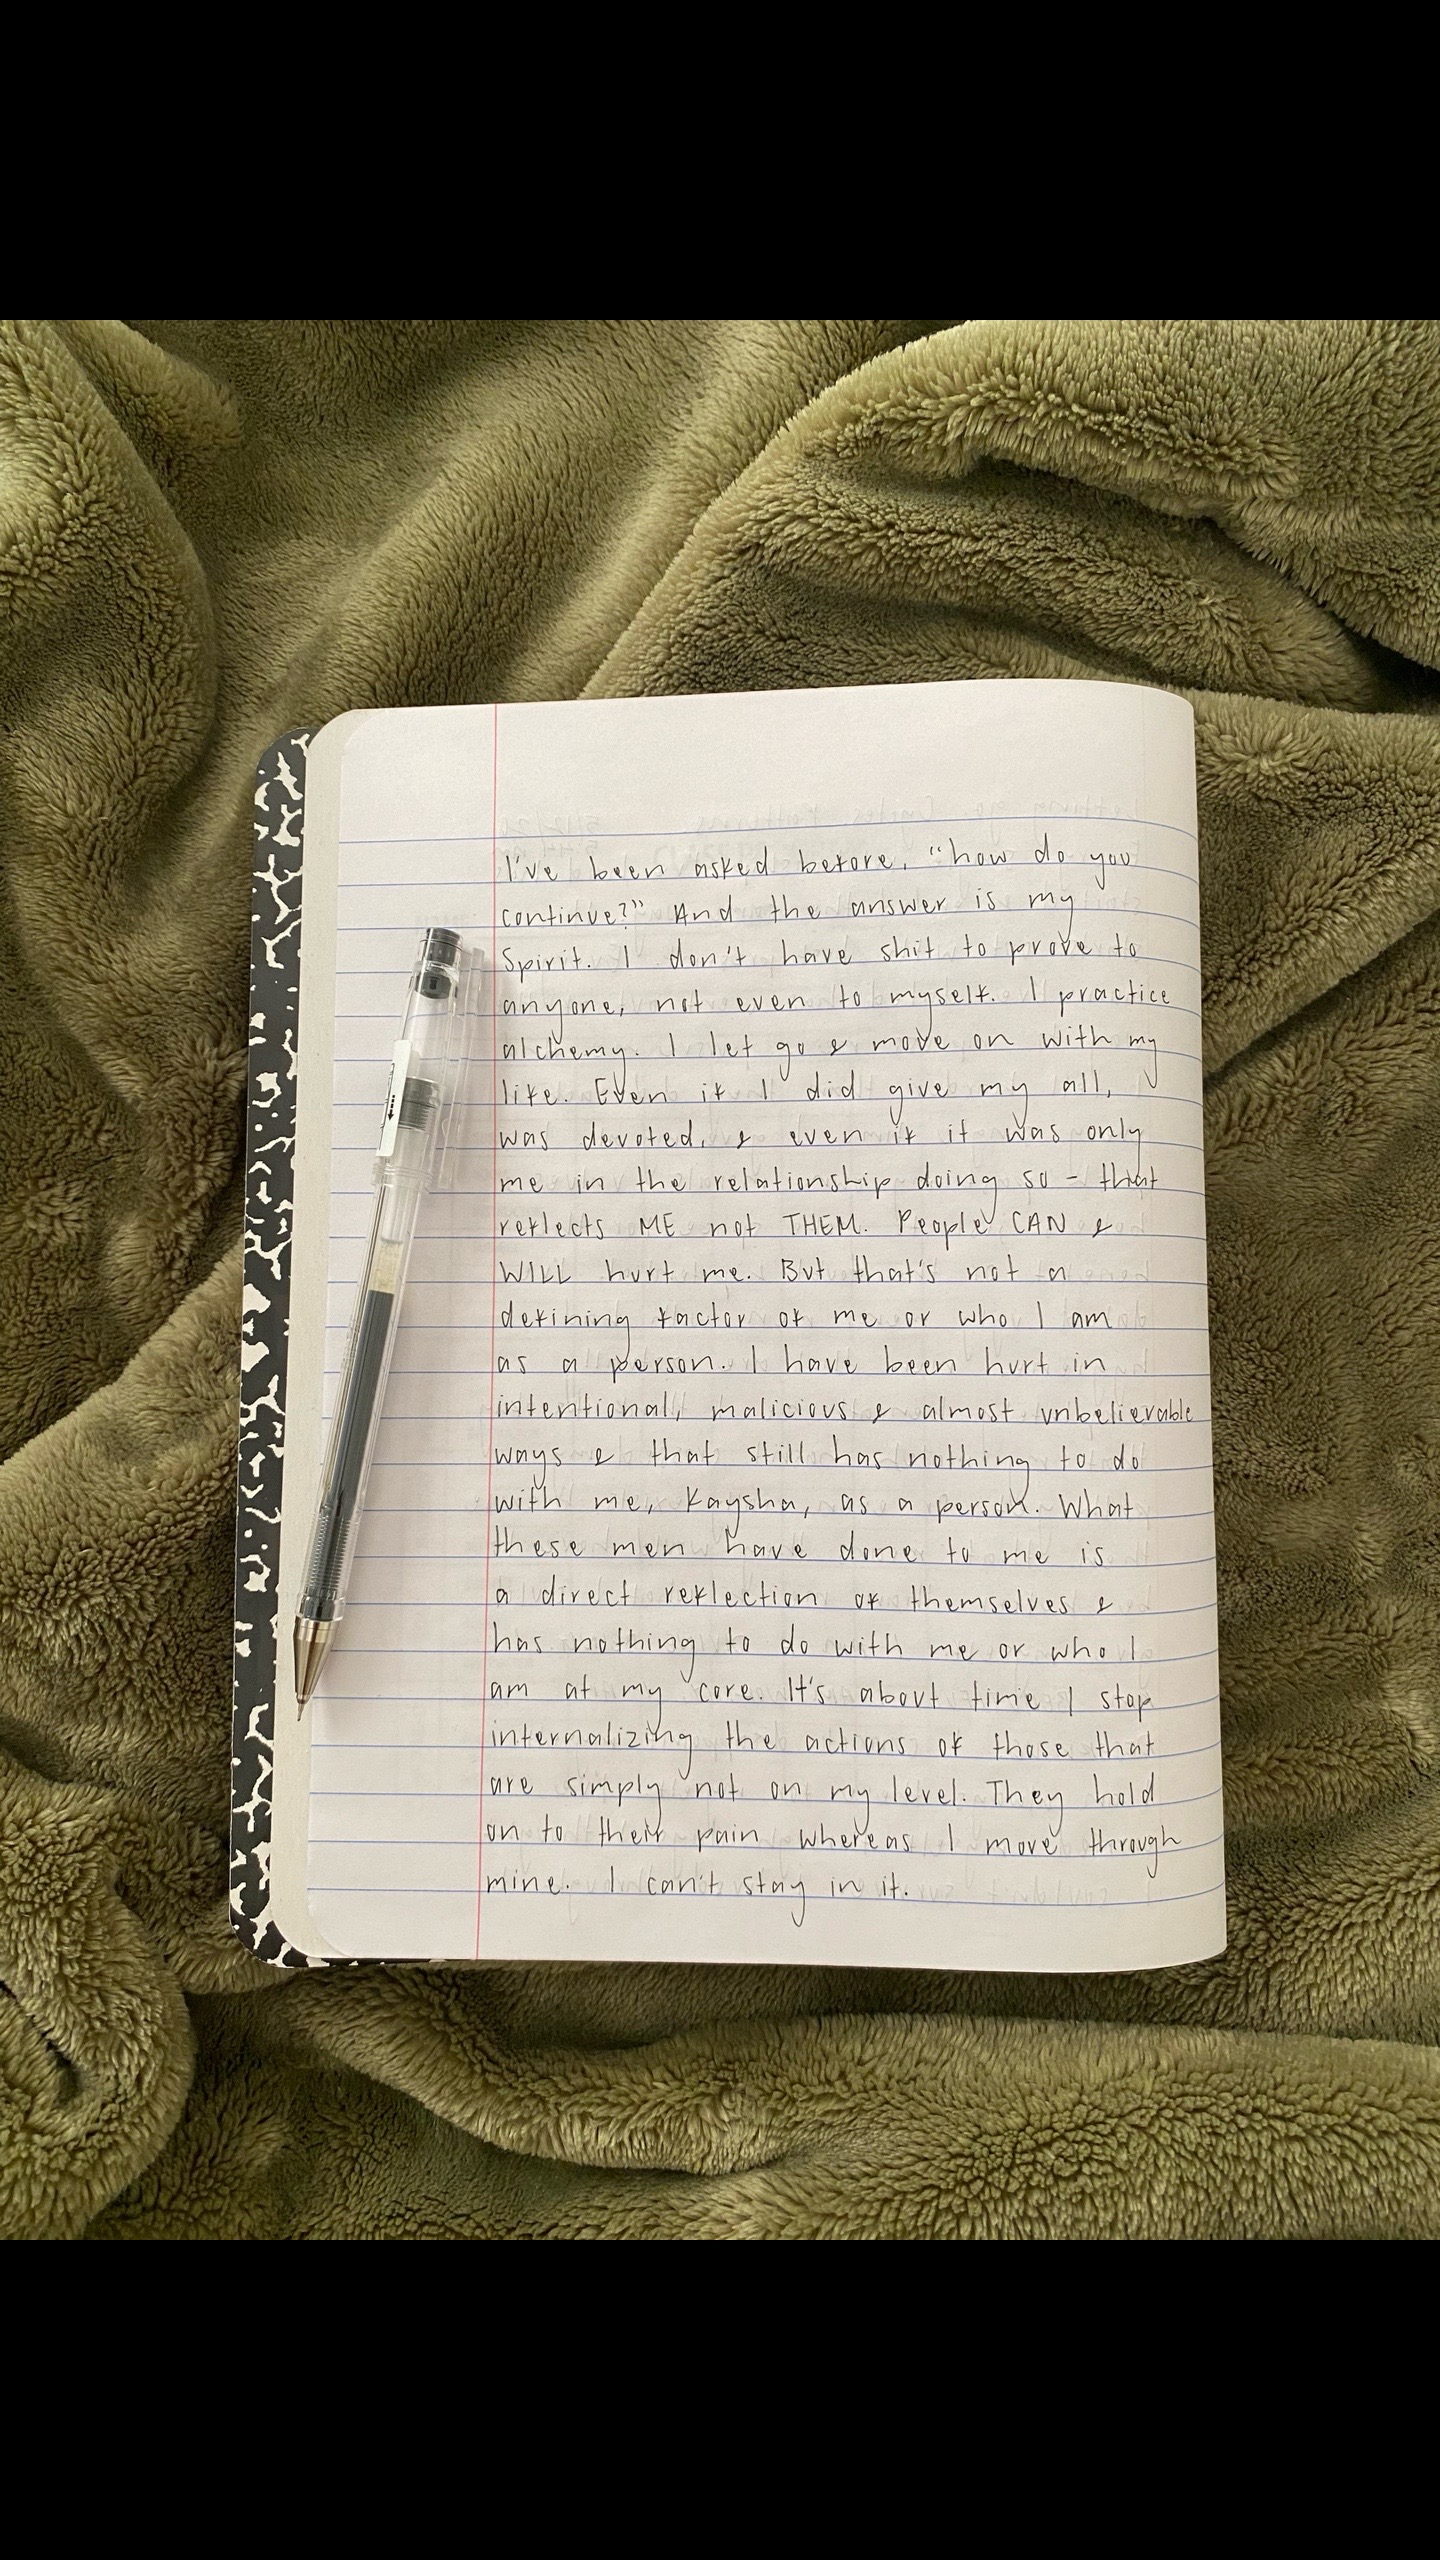 I've been asked before, "how do you
continue?" And the answer is my
Spirit. I don't have shit to prove to
anyone, not even to myself. I practice
alchemy. I let go & move on with my
life. Even if I did give my all,
was devoted, & even if it was only
me in the relationship doing so - that
reflects ME not THEM. People CAN &
WILL hurt me. But that's not a
defining factor of me or who I am
as a person. I have been hurt in
intentional, malicious & almost unbelievable
ways & that still has nothing to do
with me, Kaysha, as a person. What
these men have done to me is
a direct reflection of themselves &
has nothing to do with me or who I
am at my core. It's about time I stop
internalizing the actions of those that
are simply not on my level. They hold
on to their pain whereas I move through
mine. I can't stay in it.